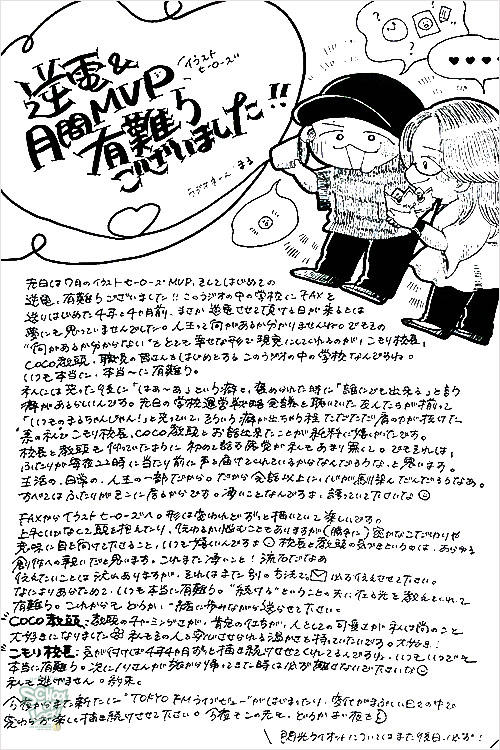 逆電&
月間MVP
イラスト
ヒーローズ
有難う
ございました!!
ラジオネーム まる
先日は7月のイラストヒーローズMVP、そしてはじめての
逆電、有難うございました!!このラジオの中の学校にFAXを
送りはじめた4年と4ヶ月前、まさか逆電させて頂ける日が来るとは
夢にも思っていませんでした。人生って何があるか分かりませんね。でもその
"何があるか分からない"をとても幸せな形で現実にしてくれるのが、こもり校長、
COCO教頭、職員の皆さんをはじめとするこのラジオの中の学校なんですね。
いつも本当に、本当〜に有難う。
私には笑った後に「はぁ〜あ」という癖と、褒められた時に「誰にでも出来る」と言う
癖があるらしいんです。先日の学校運営戦略会議を聴いていた友人たちが揃って
「いつものまるちゃんじゃん!」と笑っていて、そういう癖が出ちゃう程ただただ肩の力が抜けた
素の私でこもり校長、COCO教頭とお話出来たことが純粋に嬉しかったです。
校長と教頭を
ふたりが毎夜22時に当たり前に声を届けてくれているからなんだろうな、と思います。
生活の、日常の、人生の一部だから。だから会話以上に心が
すべてはふたりがそこに居るからです。凄いことなんですよ。誇っていて下さい☺
FAXからイラストヒーローズへ。形は変われどずっと描いていて楽しいです。
上手くいかなくて頭を抱えたり、伝わるか悩むこともありますが(勝手に)密かなこだわりや
意味に目を向けて下さること、いつも嬉しいんですよ☺校長と教頭の気づきというのは、あらゆる
創作への救いだと思います。これまた凄いこと!流石だなぁ
伝えたいことは沢山ありますが、それはまた別の方法で、✉ 必ず伝えさせて下さい。
なにより改めて、いつも本当に有難う。"続ける"ということの先に在る光を教えてくれて
有難う。これからもどうか、一緒に歩みながら送らせて下さい。
"COCO教頭:教頭の
大好きになりました☺私もその人を安心させられる温かさを持っていたいです。大好き!
"こもり校長:気が付けば4年4ヶ月ずっと描き続けさせてくれてるんですね。いつもいつでも
本当に有難う。次に1りさんが旅から帰ってきた時は必ず離さないで下さいな☺
私も逃げません。約束。
今夜からまた新たに"TOKYO FMライブビュー"がはじまったり、変化がまぶしい日々の中で
変わらず楽しく描き続けさせて下さい。今夜もこの先も、どうかよい夜を☺
\ 閃光ライオットについてはまた後日、必ず! /